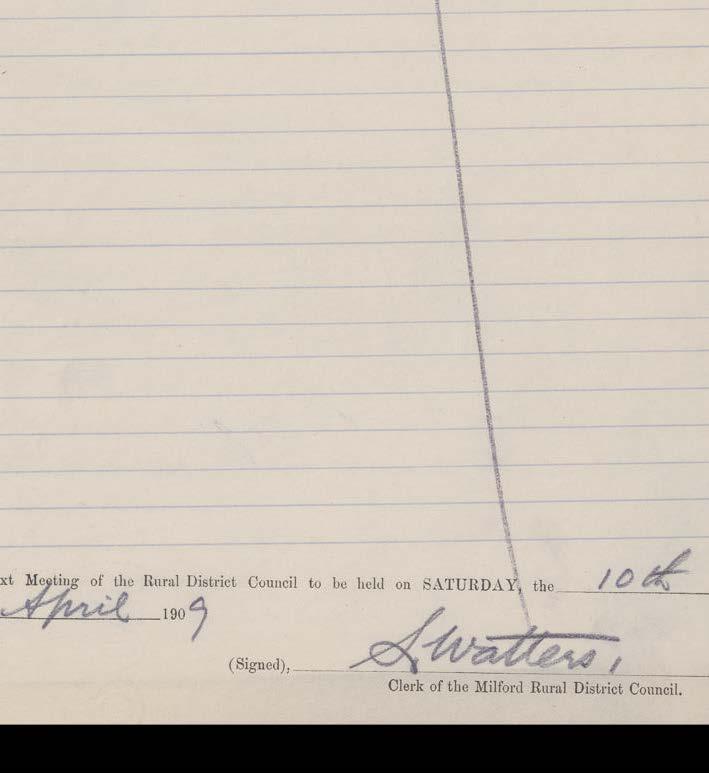 xt Meeting of the Rural District Council to be held on SATURDAY, the 10th
April 1909
(Signed), S. Watters,
Clerk of the Milford Rural District Council.